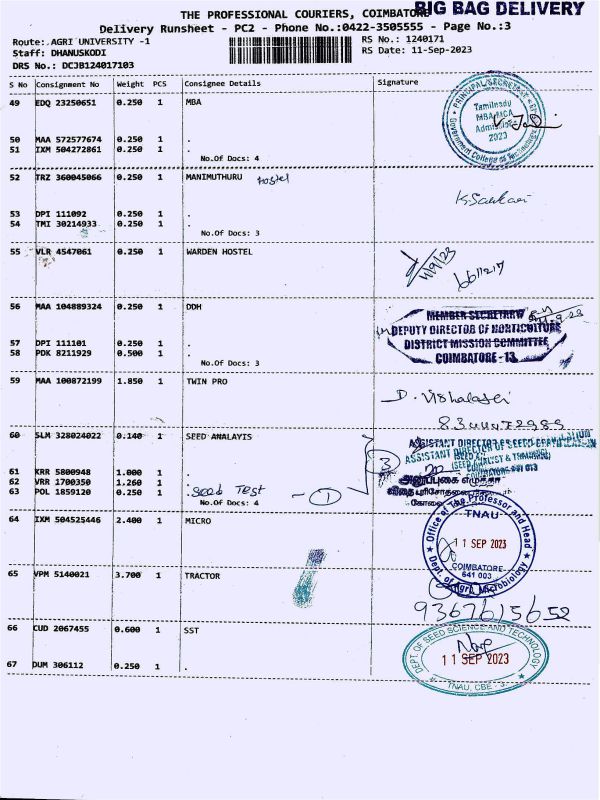 BIG BAG DELIVERY
THE PROFESSIONAL COURIERS, COIMBATORE
Delivery Runsheet - PC2 - Phone No.:0422-3505555 - Page No.:3
Route: AGRI UNIVERSITY -1
RS No.: 1240171
Staff: DHANUSKODI
RS Date: 11-Sep-2023
DRS No.: DCJB124017103
S No Consignment No Weight PCS Consignee Details Signature
49 EDQ 23250651 0.250 1 MBA
PRINCIPAL/SECRETARY
Tamilnadu
MBA/MCA
Admissions
2023
Government College of Technology
50 MAA 572577674 0.250 1 .
51 IXM 504272861 0.250 1 .
No.Of Docs: 4
52 TRZ 360045066 0.250 1 MANIMUTHURU Hostel
53 DPI 111092 0.250 1 .
54 TMI 30214933 0.250 1 .
No.Of Docs: 3
55 VLR 4547061 0.250 1 WARDEN HOSTEL
11/9/23
56 MAA 104889324 0.250 1 DDH
MEMBER SECRETARY
DEPUTY DIRECTOR OF HORTICULTURE
DISTRICT MISSION COMMITTEE
COIMBATORE - 13
57 DPI 111101 0.250 1 .
58 PDK 8211929 0.500 1 .
No.Of Docs: 3
59 MAA 100872199 1.850 1 TWIN PRO
D.
60 SLM 328024022 0.140 1 SEED ANALAYIS
ASSISTANT DIRECTOR OF SEED
3
61 KRR 5800948 1.000 1 .
62 VRR 1700350 1.260 1 .
63 POL 1859120 0.250 1 .Seed Test - 1
No.Of Docs: 4
64 IXM 504525446 2.400 1 MICRO
Office of The Professor and Head
TNAU
11 SEP 2023
COIMBATORE-
641 003
Dept. of Agrl. Microbiology
65 VPM 5140021 3.700 1 TRACTOR
9367615652
66 CUD 2067455 0.600 1 SST
DEPT. OF SEED SCIENCE AND TECHNOLOGY
11 SEP 2023
TNAU, CBE - 3.
67 DUM 306112 0.250 1 .